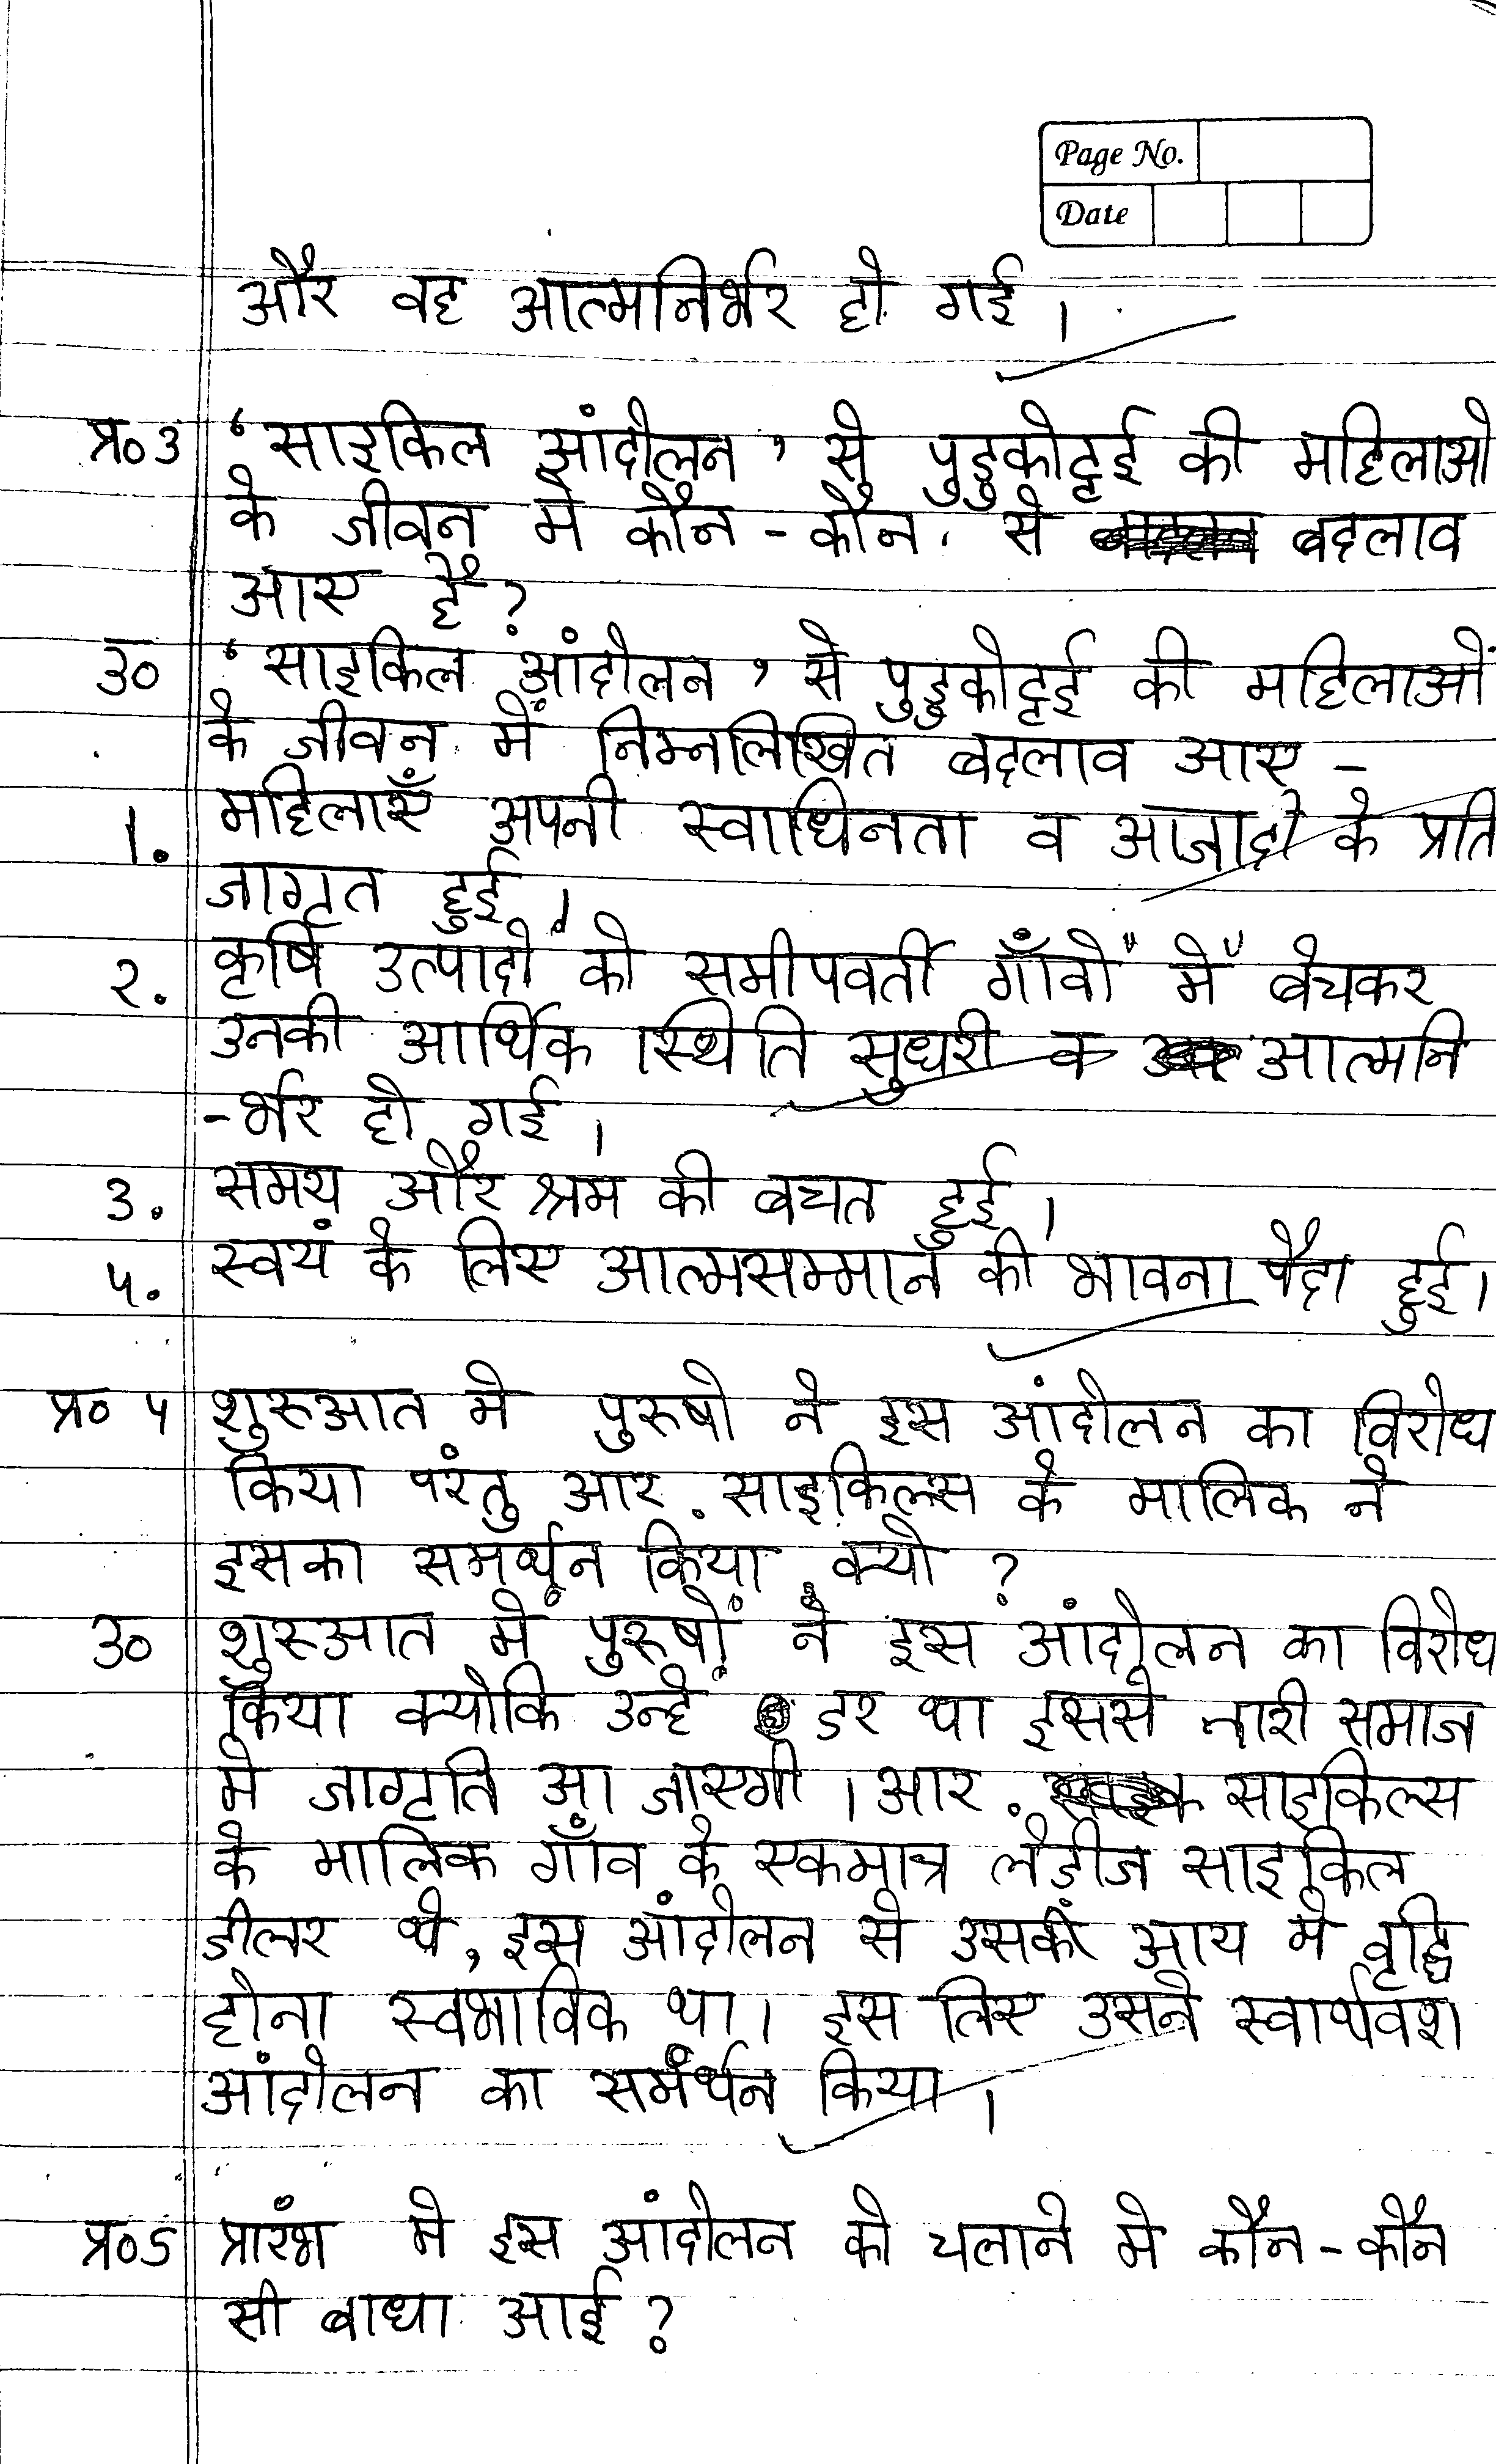 Page No.
Date
और वह आत्मनिर्भर हो गई ।
प्र० 3 ‘साइकिल आंदोलन’ से पुडुकोट्टई की महिलाओ
के जीवन मे कौन - कौन से बदलाव
आए है ?
उ० ‘साइकिल आंदोलन’ से पुडुकोट्टई की महिलाओं
के जीवन में निम्नलिखित बदलाव आए -
1. महिलाएँ अपनी स्वाधिनता व आजादी के प्रति
जागृत हुई ।
2. कृषि उत्पादो को समीपवर्ती गाँवों में बेचकर
उनकी आर्थिक स्थिति सुधरी व आत्मनि
-र्भर हो गई ।
3. समय और श्रम की बचत हुई ।
4. स्वयं के लिए आत्मसम्मान की भावना पैदा हुई ।
प्र० 4 शुरुआत मे पुरुषो ने इस आंदोलन का विरोध
किया परंतु आर. साइकिल्स के मालिक ने
इसका समर्थन किया क्यो ?
उ० शुरुआत में पुरुषों ने इस आंदोलन का विरोध
किया क्योकि उन्हे डर था इससे नारी समाज
मे जागृति आ जाएगी । आर. साइकिल्स
के मालिक गाँव के एकमात्र लेडीज साइकिल
डीलर थे, इस आंदोलन से उसकी आय मे वृद्धि
होना स्वभाविक था । इस लिए उसने स्वार्थवश
आंदोलन का समर्थन किया ।
प्र० 5 प्रारंभ मे इस आंदोलन को चलाने मे कौन - कौन
सी बाधा आई ?